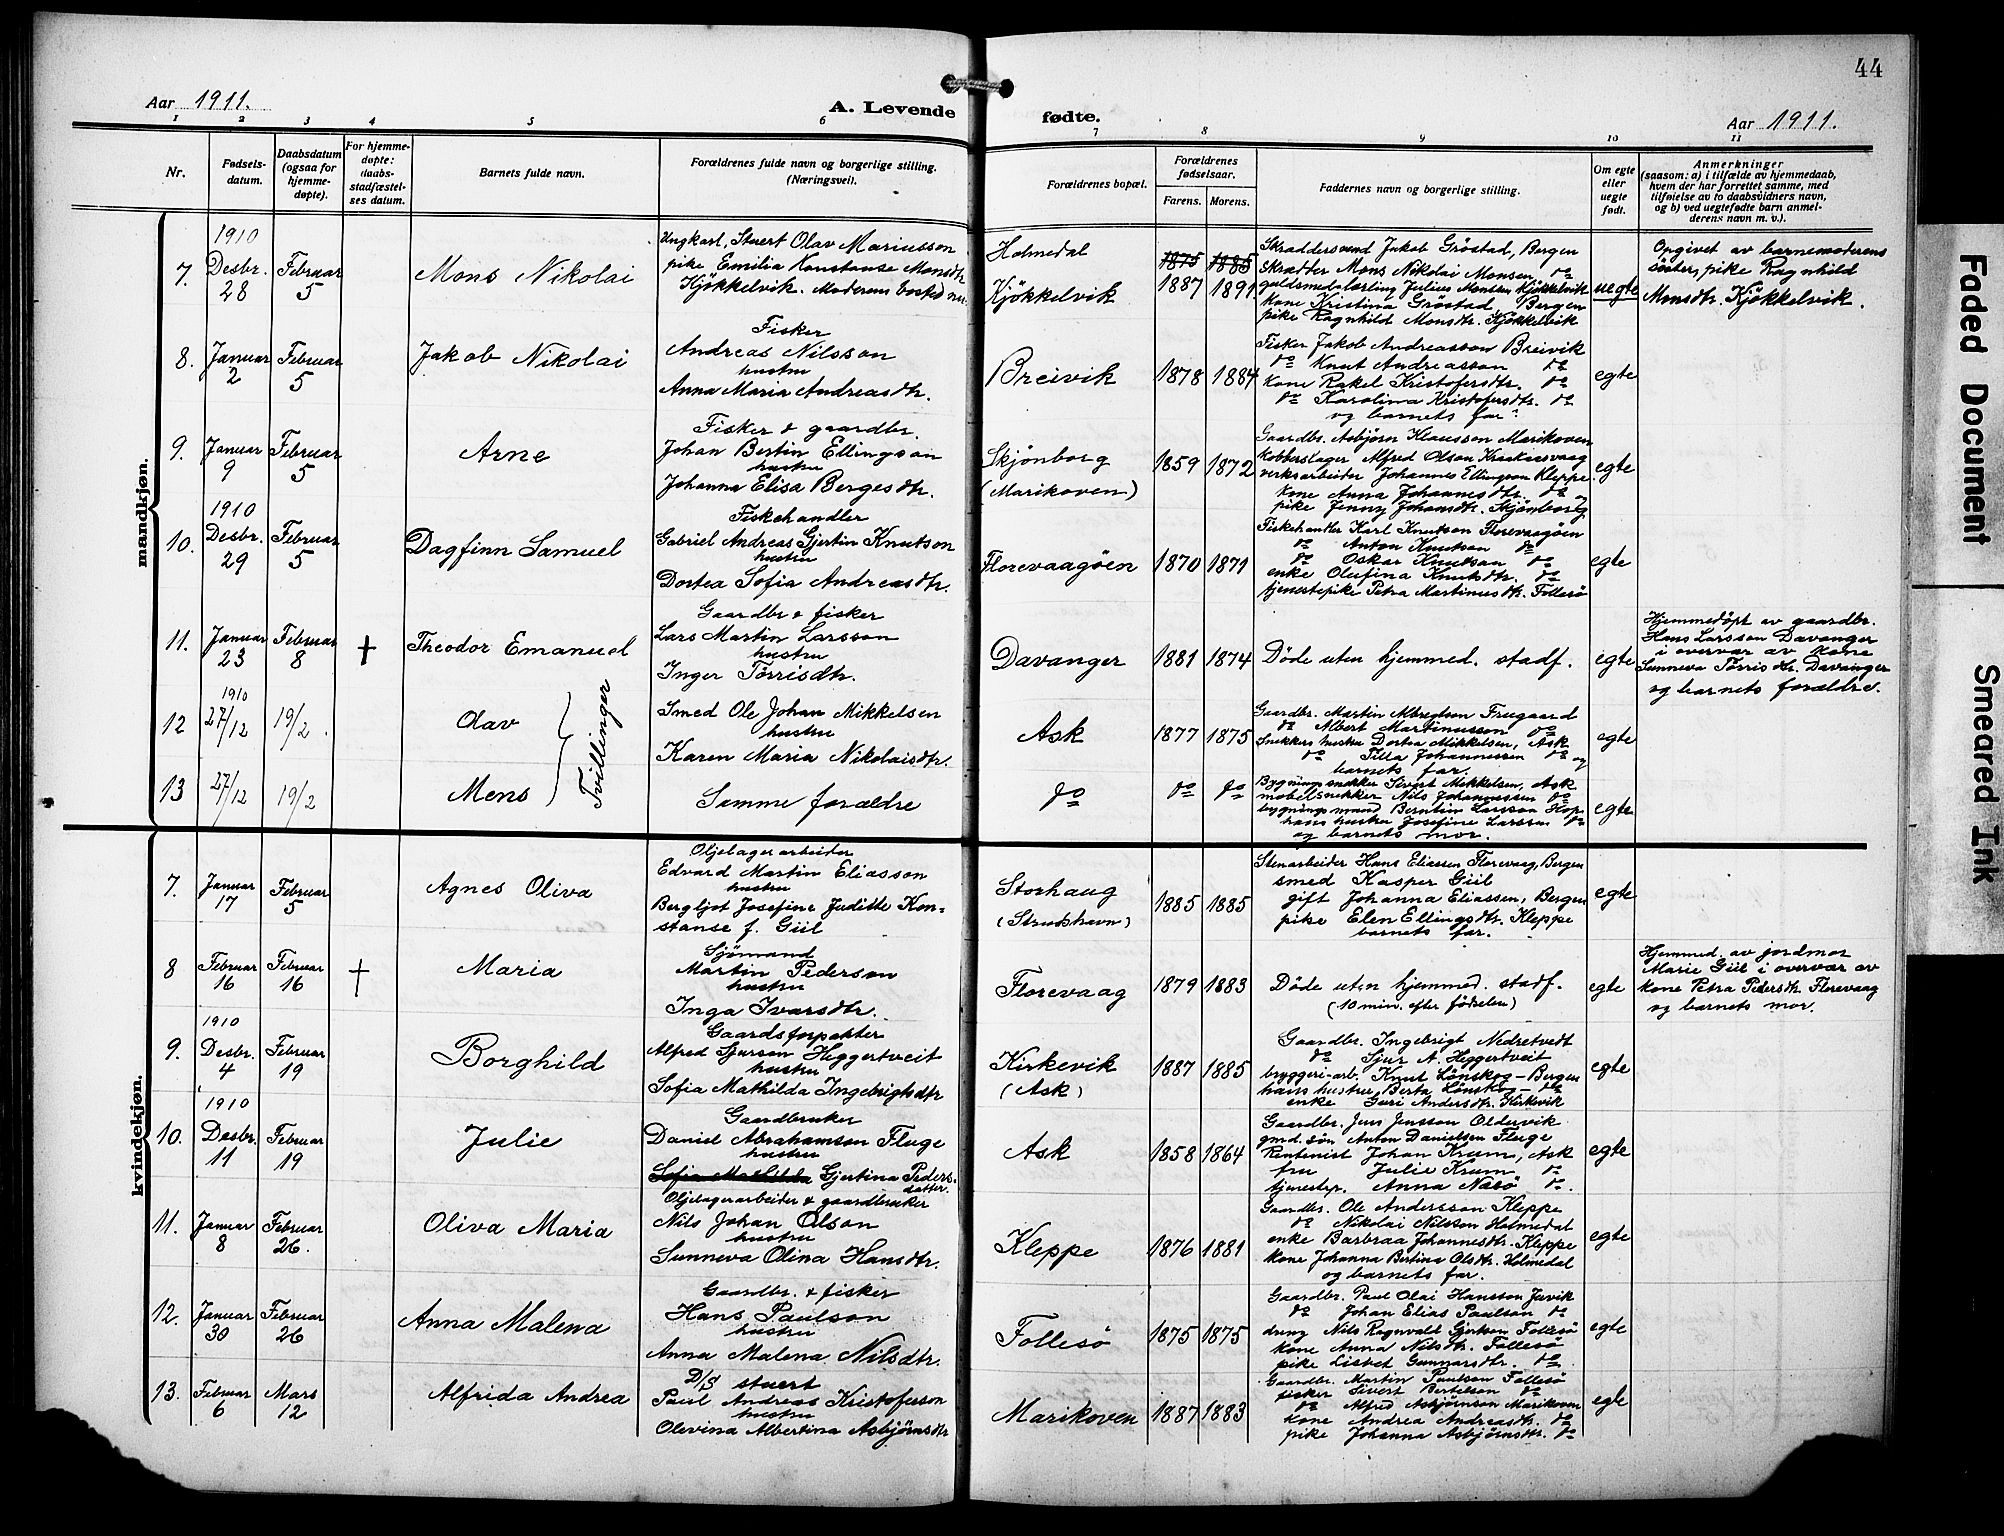 44
Aar 1911.
A. Levende fødte.
Aar 1911.
1 2 3 4 5 6 7 8 9 10 11
Nr.
Fødsels-
datum.
Daabsdatum
(ogsaa for
hjemme-
døpte).
For hjemme-
døpte:
daabs-
stadfæstel-
ses datum.
Barnets fulde navn.
Forældrenes fulde navn og borgerlige stilling.
(Næringsvei).
Forældrenes bopæl.
Forældrenes
fødselsaar.
Farens. Morens.
Faddernes navn og borgerlige stilling.
Om egte
eller
uegte
født.
Anmerkninger
(saasom: a) i tilfælde av hjemmedaab,
hvem der har forrettet samme, med
tilføielse av to daabsvidners navn,
og b) ved uegtefødte barn anmel-
derens navn m. v.).
mandkjøn.
7.
1910
Desbr.
28
Februar
5
Mons Nikolai
Ungkarl, Stuert Olav Mariusson
pike Emilia Konstanse Monsdtr
Kjøkkelvik. Moderens bosted
Holmedal
Kjøkkelvik
1875 1885
1887 1891
Skræddersvend Jakob Gröstad, Bergen
Skrædder Mons Nikolai Monsen do
guldsmedlærling Julius Monsson Kjøkkelvik
kone Kristina Gröstad, Bergen
pike Ragnhild Monsdtr. Kjøkkelvik
uegte
Opgivet av barnemoderens
söster, pike Ragnhild
Monsdtr. Kjøkkelvik.
8.
Januar
2
Februar
5
Jakob Nikolai
Fisker
Andreas Nilsson
hustru
Anna Maria Andreasdtr.
Breivik
1878 1884
Fisker Jakob Andreasson Breivik
do Knut Andreasson do
kone Rakel Kristofersdtr. do
do Karolina Kristofersdtr. do
og barnets far.
egte
9.
Januar
9
Februar
5
Arne
Fisker & gaardbr.
Johan Bertin Ellingson
hustru
Johanna Elisa Bergesdtr.
Skjönborg
(Marikoven)
1859 1872
Gaardbr. Asbjørn Klausson Marikoven
kobberslager Alfred Olson Kraakaasvaag
verksarbeider Johannes Ellingson Kleppe
kone Anna Johannesdtr. do og
pike Jenny Johansdtr. Skjönborg
egte
10.
1910
Desbr.
29
Februar
5
Dagfinn Samuel
Fiskehandler
Gabriel Andreas Gjertin Knutson
hustru
Dortea Sofia Andreasdtr.
Florevaagöen
1870 1871
Fiskehandler Karl Knutson Florevaagöen
do Anton Knutson do
do Oskar Knutson do
enke Olufina Knutsdtr. do
tjenestepike Petra Martinusdtr. Follesö
egte
11.
Januar
23
Februar
8
†
Theodor Emanuel
Gaardbr & fisker
Lars Martin Larsson
hustru
Inger Törrisdtr.
Davanger
1881 1874
Döde uten hjemmed. stadf.
egte
Hjemmedöpt av gaardbr.
Hans Larsson Davanger
i overvær av kone
Sunneva Törrisdtr. Davanger
og barnets forældre.
12
1910
27/12
19/2.
Olav
Tvillinger
Smed Ole Johan Mikkelsen
hustru
Karen Maria Nikolaisdtr.
Ask
1877 1875
Gaardbr. Martin Albregtson Frugaard
do Albert Martinusson do
Snekkers hustru Dortea Mikkelsen, Ask
do Tilla Johannessen do og
barnets far.
egte
13
27/12
19/2
Mons
Samme forældre
do
do do
Bygningssnekker Sivert Mikkelsen, Ask
møbelsnekker Nils Johannessen do
bygningsmand Berntin Larsson Hop
hans hustru Josefine Larssen do
og barnets mor.
egte
kvindekjøn.
7.
Januar
17
Februar
5
Agnes Oliva
Oljelagerarbeider
Edvard Martin Eliasson
hustru
Bergljot Josefine Juditte Kon-
stanse f. Giil
Storhaug
(Strusshavn)
1885 1885
Stenarbeider Hans Eliassen Florevaag, Bergen
smed Kasper Giil
gift Johanna Eliassen, Bergen
pike Elen Ellingsdtr. Kleppe
barnets far.
egte
8
Februar
16
Februar
16
†
Maria
Sjømand
Martin Pederson
hustru
Inga Ivarsdtr.
Florevaag
1879 1883
Döde uten hjemmed. stadf.
(10 min. efter födselen)
egte
Hjemmed. av jordmor
Marie Giil i overvær av
kone Petra Pedersdtr. Florevaag
og barnets mor.
9.
1910
Desbr.
4
Februar
19
Borghild
Gaardsforpakter
Alfred Sjurson Heggertveit
hustru
Sofia Mathilda Ingebrigtsdtr
Kirkevik
(Ask)
1887 1885
Gaardbr. Ingebrigt Nedretvedt
do Sjur A. Heggertveit
bryggeri-arb. Knut Lönskog - Bergen
hans hustru Berta Lönskog - do
enke Guri Andersdtr. Kirkevik
egte
10.
1910
Desbr.
11
Februar
19
Julie
Gaardbruker
Daniel Abrahamson Fluge
hustru
Sofia Mathilda Gjertina Peders-
datter.
Ask
1858 1864
Gaardbr. Jens Jensson Oldervik
gmd. sön Anton Danielsen Fluge
Rentenist Johan Krum, Ask
fru Julie Krum do
tjenestep. Anna Næsö do.
egte
11.
Januar
8
Februar
26.
Oliva Maria
Oljelagerarbeider & gaardbruker
Nils Johan Olson
hustru
Sunneva Olina Hansdtr.
Kleppe
1876 1881
Gaardbr. Ole Andersson Kleppe
do Nikolai Nilsson Holmedal
enke Barbraa Johannesdtr. Kleppe
kone Johanna Bertina Olsdtr. Holmedal
og barnets far.
egte
12.
Januar
30
Februar
26
Anna Malena
Gaardbr. & fisker
Hans Paulson
hustru
Anna Malena Nilsdtr.
Follesö
1875 1875
Gaardbr. Paul Olai Hansson Juvik
do Johan Elias Paulson do
dreng Nils Ragnvald Gjertson Follesö
kone Anna Nilsdtr. Follesö
pike Lisbet Gunnarsdtr. do
egte
13.
Februar
6
Mars
12
Alfrida Andrea
D/S stuert
Paul Andreas Kristoferson
hustru
Olevina Albertina Asbjörnsdtr
Marikoven
1887 1883
Gaardbr. Martin Paulson Follesö
fisker Sivert Bertelson do
do Alfred Asbjörnson Marikoven
kone Andrea Andreasdtr. do
pike Johanna Asbjörnsdtr. do
egte
Faded Document
Smeared Ink